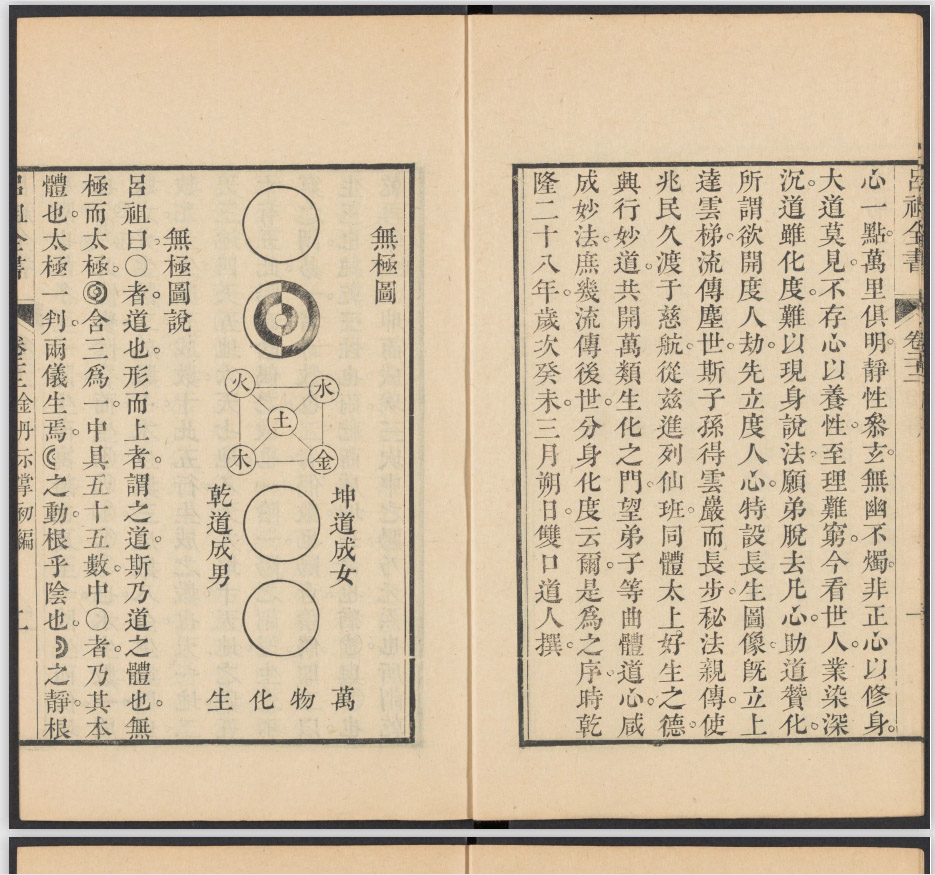 呂祖全書
心一點萬里俱明靜性叅玄無幽不燭非正心以修身。
大道莫見。不存心以養性。至理難窮。今看世人。業染深
沉。道雖化度。難以現身說法。願弟脫去凡心。助道贊化。
所謂欲開度人劫。先立度人心。特設長生圖像。旣立上
達雲梯。流傳塵世。斯子孫得雲嚴而長步。秘法親傳。使
兆民久渡于慈航。從茲進列仙班。同體太上好生之德。
興行妙道。共開萬類生化之門。望弟子等曲體道心。咸
成妙法。庶幾流傳後世。分身化度云爾。是爲之序。時乾
隆二十八年。歲次癸未三月朔日。雙口道人撰。
無極圖
水
火
土
金
木
坤道成女
乾道成男
萬物化生
無極圖說
呂祖曰〇者。道也。形而上者。謂之道。斯乃道之體也。無
極而太極。含三爲一。中具五十五數。中〇者。乃其本
體也。太極一判。兩儀生焉。之動。根乎陰也。之靜。根
呂祖全書
金丹示掌初編